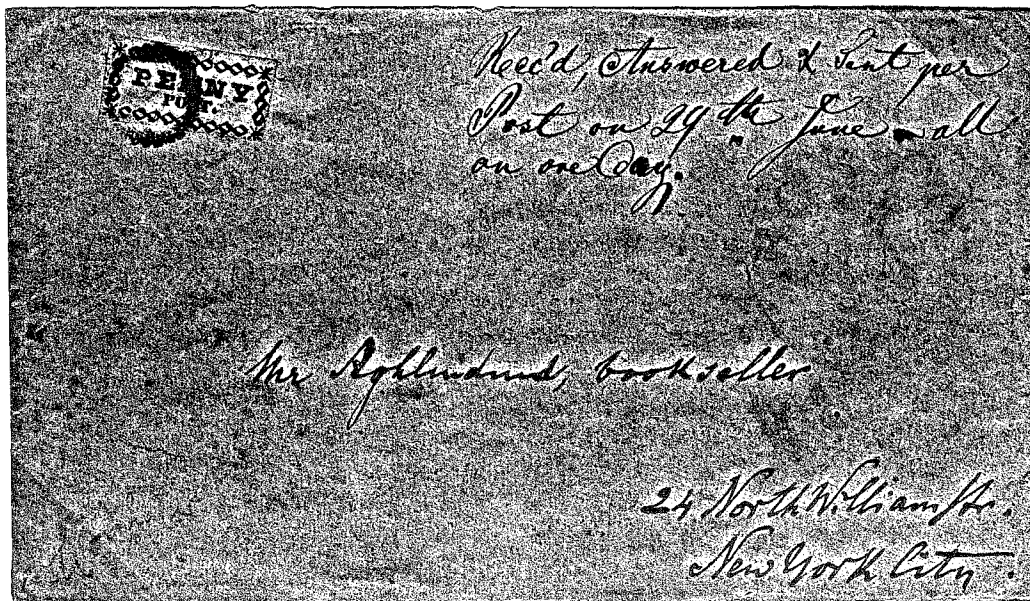 PENNY
POST.
Rec'd, Answered & Sent per
Post on 29th June - all
on one day.
Mr bookseller
24 North William Str.
New York City.